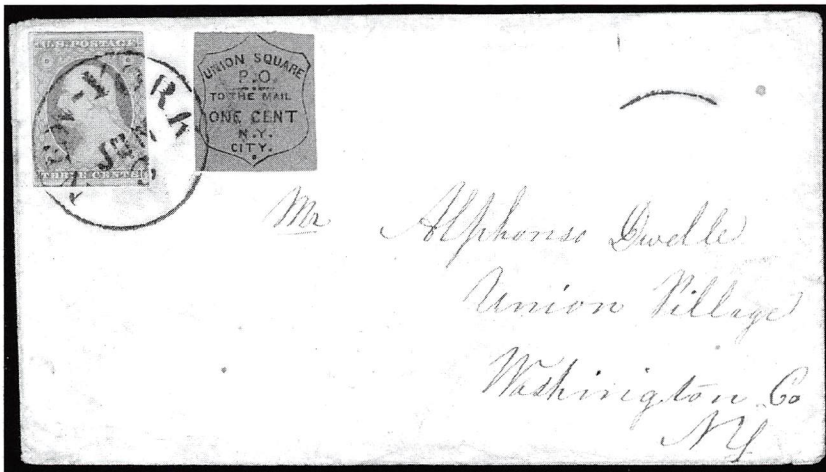 U.S. POSTAGE
THREE CENTS
NEW-YORK
UNION SQUARE
P.O.
TO THE MAIL
ONE CENT
N.Y.
CITY.
Mr Alphonso Dwelle
Union Village
Washington Co
NY